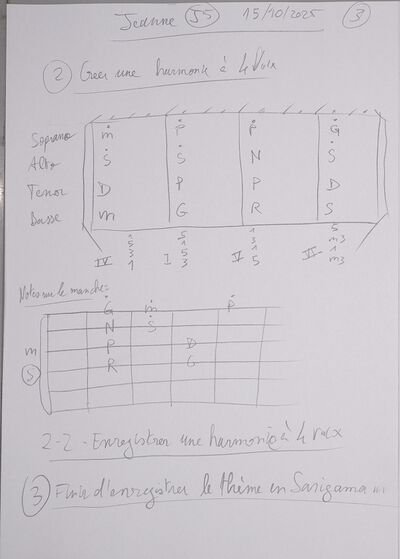 Jeanne J5 15/10/2025 3
2 Créer une harmonie à 4 Voix
Soprano ṁ Ṗ Ṗ Ġ
Alto Ṡ Ṡ N Ṡ
Tenor D P P D
Basse m G R S
5 5 1 5
5 1 3 m3
3 5 1 1
IV 1 I 3 V 5 VI- m3
Notes sur le manche:
Ġ ṁ Ṗ
N Ṡ
m P D
S R G
2-2 - Enregistrer une harmonie à 4 voix
3 Finir d'enregistrer le thème en Sarigama